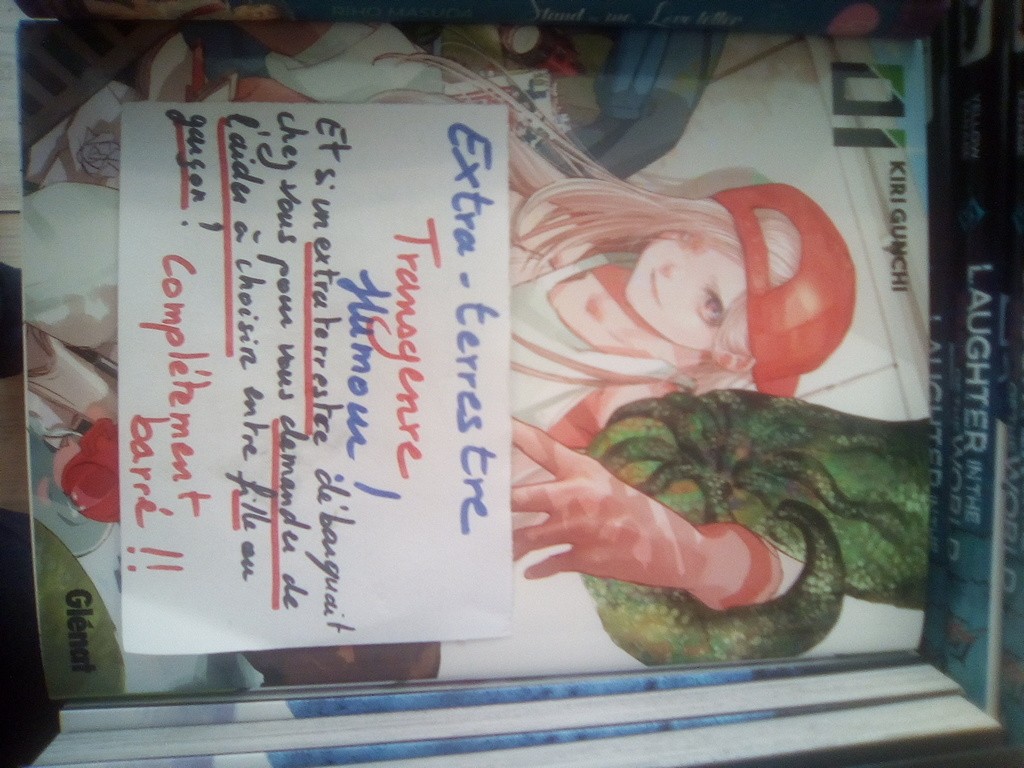 RIHO MASUDA
Stand by me, Love letter
01
KIRI GUNCHI
Extra-terrestre
Transgenre
Humour !
Et si un extraterrestre débarquait
chez vous pour vous demander de
l'aider à choisir entre fille ou
garçon !
Complètement
barré !!
Glénat
LAUGHTER IN THE